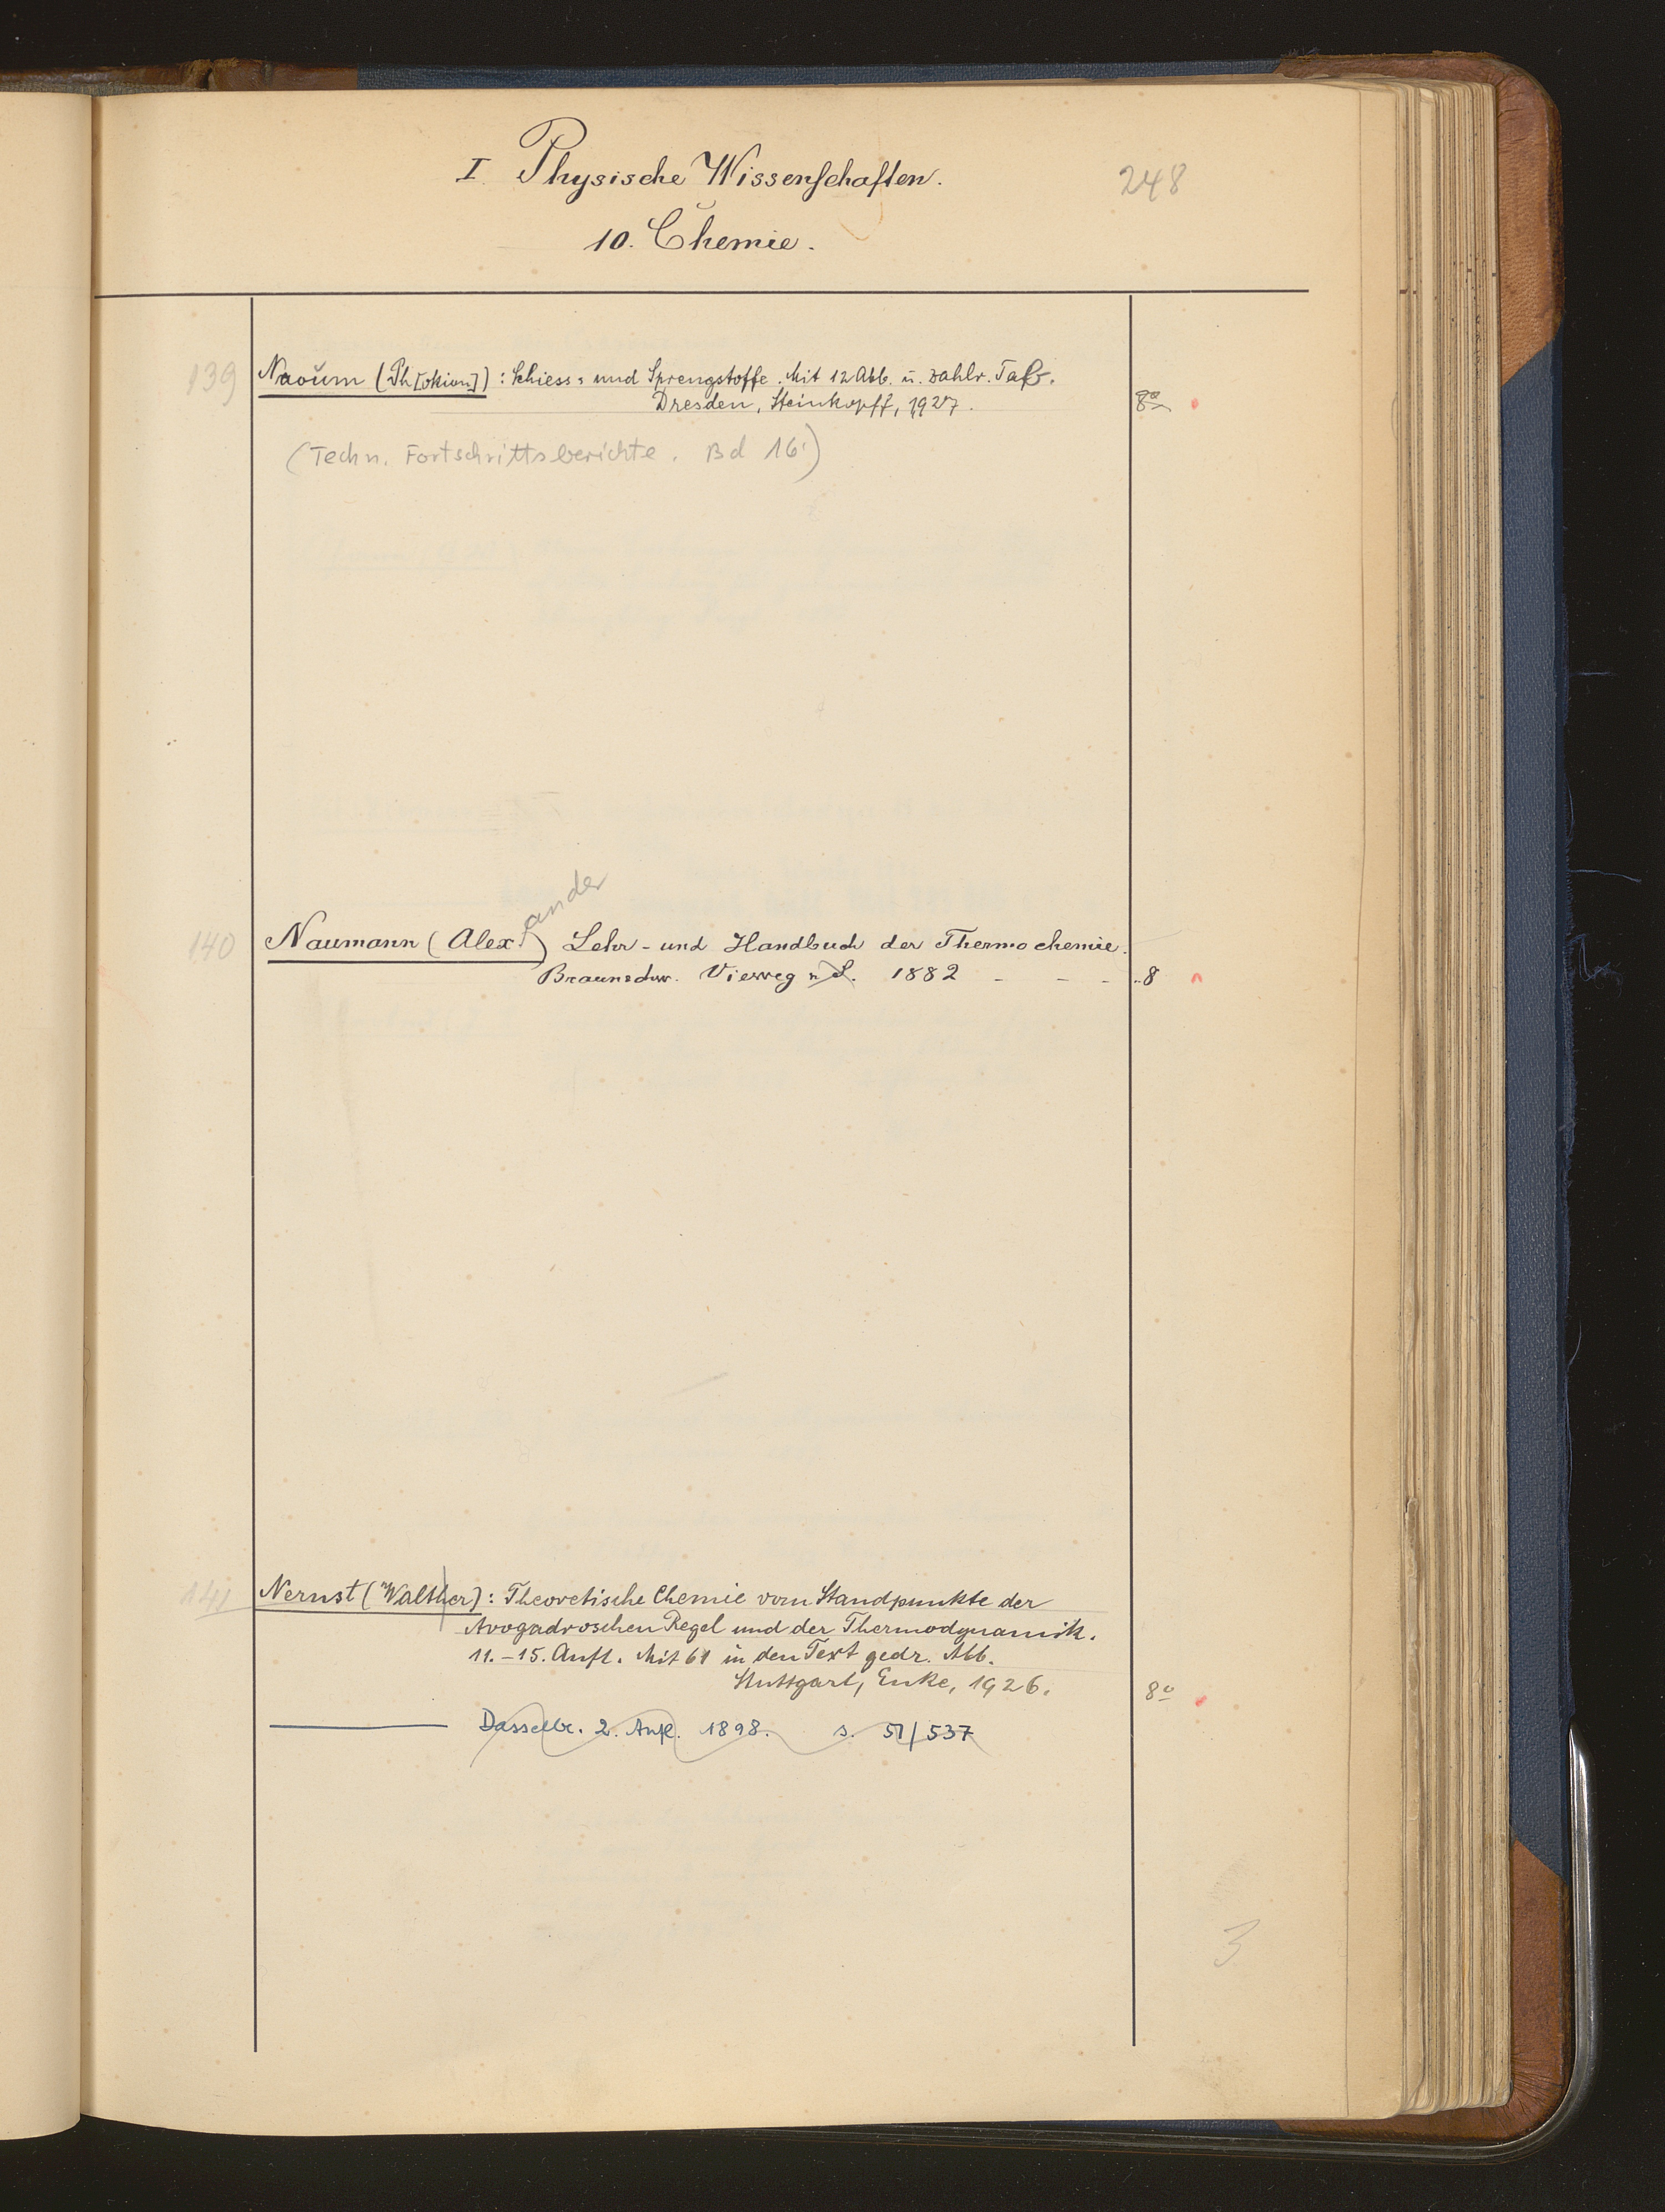 I. Physische Wissenschaften.
248
10. Chemie.
139 Naoúm (Ph[okion]) : Schiess- und Sprengstoffe. Mit 12 Abb. u. zahlr. Tab.
Dresden, Steinkopff, 1927. 8°
(Techn. Fortschrittsberichte. Bd 16.)
ander
140 Naumann (Alex.) Lehr- und Handbuch der Thermochemie.
Braunschw. Vieweg u. S. 1882 - - - 8
141 Nernst (Walther) : Theoretische Chemie vom Standpunkte der
Avogadroschen Regel und der Thermodynamik.
11.-15. Aufl. Mit 61 in den Text gedr. Abb.
Stuttgart, Enke, 1926. 8°
Dasselbe. 2. Aufl. 1898. s. 51/537
3